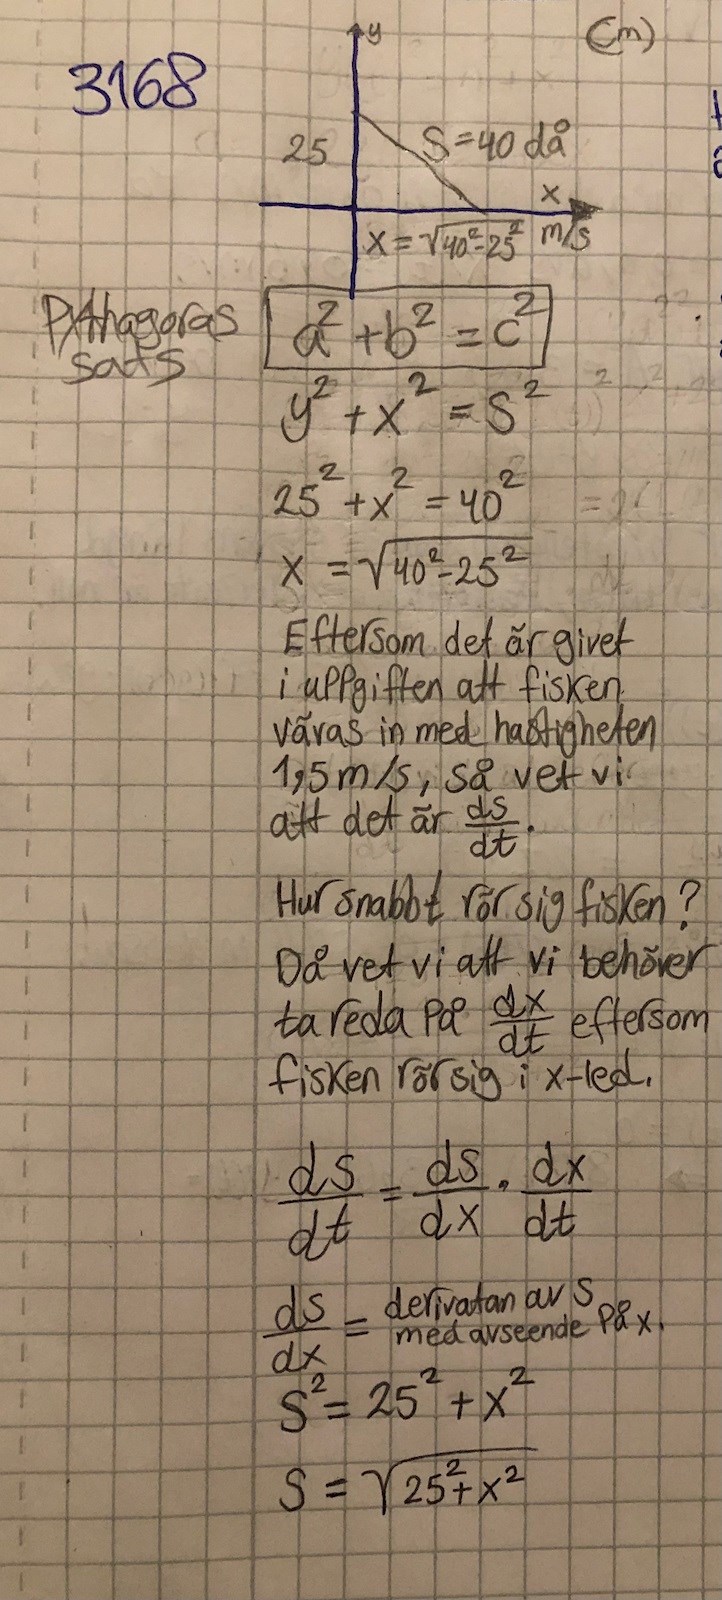 3168
y
(m)
25
S=40 då
x
x = √40²-25²
m/s
Pythagoras
sats
a² + b² = c²
y² + x² = S²
25² + x² = 40²
x = √40²-25²
Eftersom det är givet
i uppgiften att fisken
väras in med hastigheten
1,5 m/s, så vet vi
att det är ds/dt.
Hur snabbt rör sig fisken?
Då vet vi att vi behöver
ta reda på dx/dt eftersom
fisken rör sig i x-led.
ds/dt = ds/dx · dx/dt
ds/dx = derivatan av S
med avseende på x.
S² = 25² + x²
S = √25²+x²